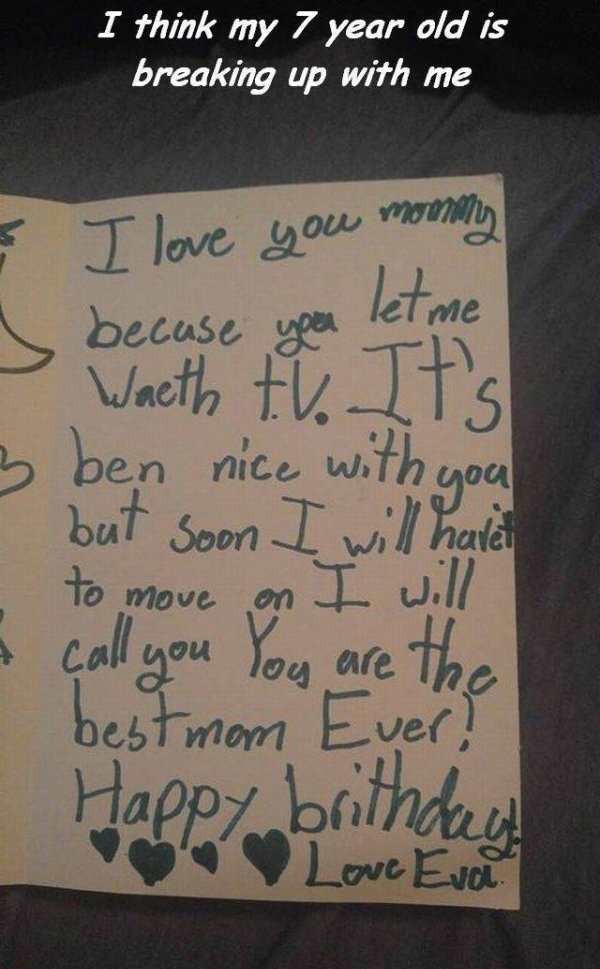 I think my 7 year old is
breaking up with me
I love you mommy
becuse you let me
Wacth t.V. It's
ben nice with you
but soon I will have
to move on I will
call you You are the
best mom Ever!
Happy brithday!
Love Eva